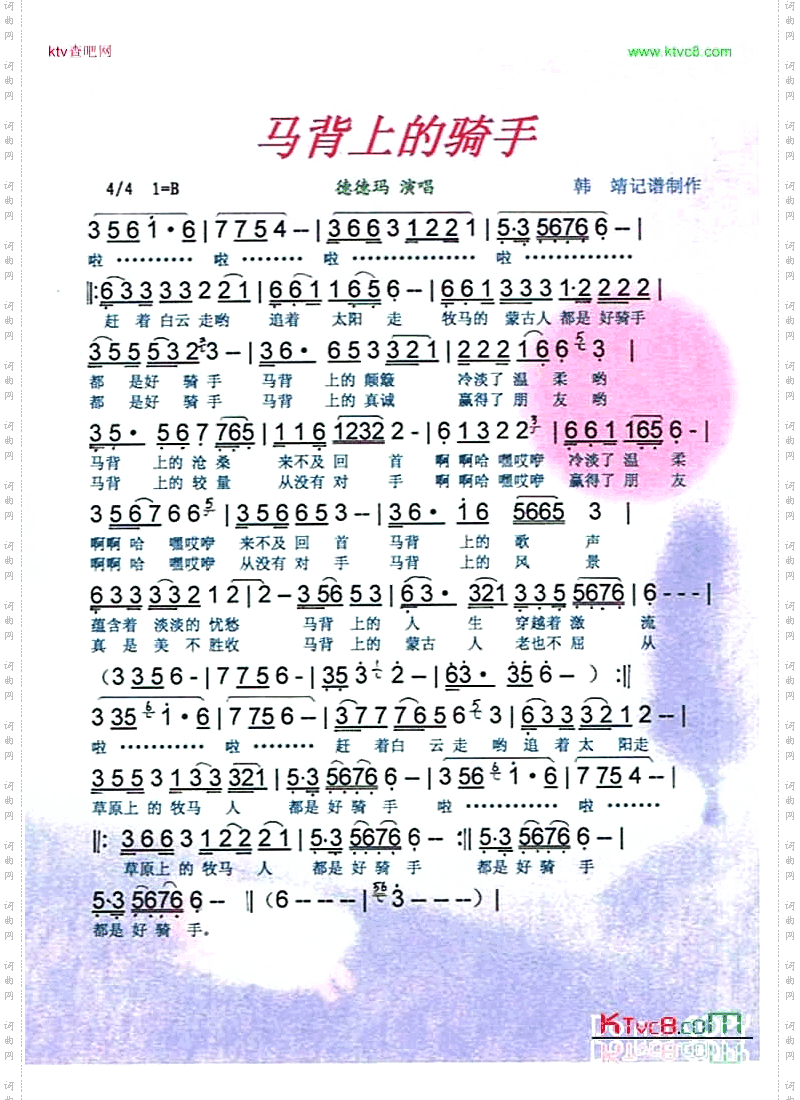 ktv查吧网 www.ktvc8.com
马背上的骑手
4/4 1=B 德德玛 演唱 韩 靖记谱制作
3 5 6 1·6 | 7 7 5 4 -- | 3 6 6 6 3 1 2 2 1 | 5·3 5676 6 -- |
啦 ·········· 啦 ········ 啦 ················ 啦 ··············
‖: 6 3 3 3 3 2 2 1 | 6 6 1 1 6 5 6 -- | 6 6 1 3 3 3 1·2 2 2 2 |
赶 着 白云 走哟 追着 太阳 走 牧马的 蒙古人 都是 好骑手
3 5 5 5 3 2 3 -- | 3 6· 6 5 3 2 1 | 2 2 2 1 6 6 3 |
都 是好 骑 手 马背 上的 颠簸 冷淡了 温 柔 哟
都 是好 骑 手 马背 上的 真诚 赢得了 朋 友 哟
3 5· 5 6 7 765 | 1 1 6 1232 2 - | 6 1 3 2 2 | 6 6 1 165 6 - |
马背 上的 沧 桑 来不及 回 首 啊 啊哈 嘿哎咿 冷淡了 温 柔
马背 上的 较 量 从没有 对 手 啊 啊哈 嘿哎咿 赢得了 朋 友
3 5 6 7 6 6 | 3 5 6 6 5 3 -- | 3 6· 1 6 5665 3 |
啊啊 哈 嘿哎咿 来不及 回 首 马背 上的 歌 声
啊啊 哈 嘿哎咿 从没有 对 手 马背 上的 风 景
6 3 3 3 3 2 1 2 | 2 - 3 56 5 3 | 6 3· 321 3 3 5 5676 | 6 - - - |
蕴含着 淡淡的 忧愁 马背 上的 人 生 穿越着 激 流
真 是 美 不 胜收 马背 上的 蒙古 人 老也不 屈 从
（3 3 5 6 - | 7 7 5 6 - | 35 3 2 -- | 63· 35 6 -- ）:‖
3 35 1·6 | 7 75 6 -- | 3 7 7 7 6 5 6 3 | 6 3 3 3 2 1 2 -- |
啦 ··········· 啦 ········ 赶 着白 云 走 哟 追 着 太 阳走
3 5 5 3 1 3 3 321 | 5·3 5676 6 -- | 3 56 1·6 | 7 75 4 -- |
草原上 的 牧马 人 都是 好 骑 手 啦 ············ 啦 ·······
‖: 3 6 6 3 1 2 2 2 1 | 5·3 5676 6 -- :‖ 5·3 5676 6 -- |
草原上 的 牧马 人 都是 好 骑 手 都是 好 骑 手
5·3 5676 6 -- ‖（6 ---- | 3 ----）|
都是 好 骑 手。
KTvc8.com